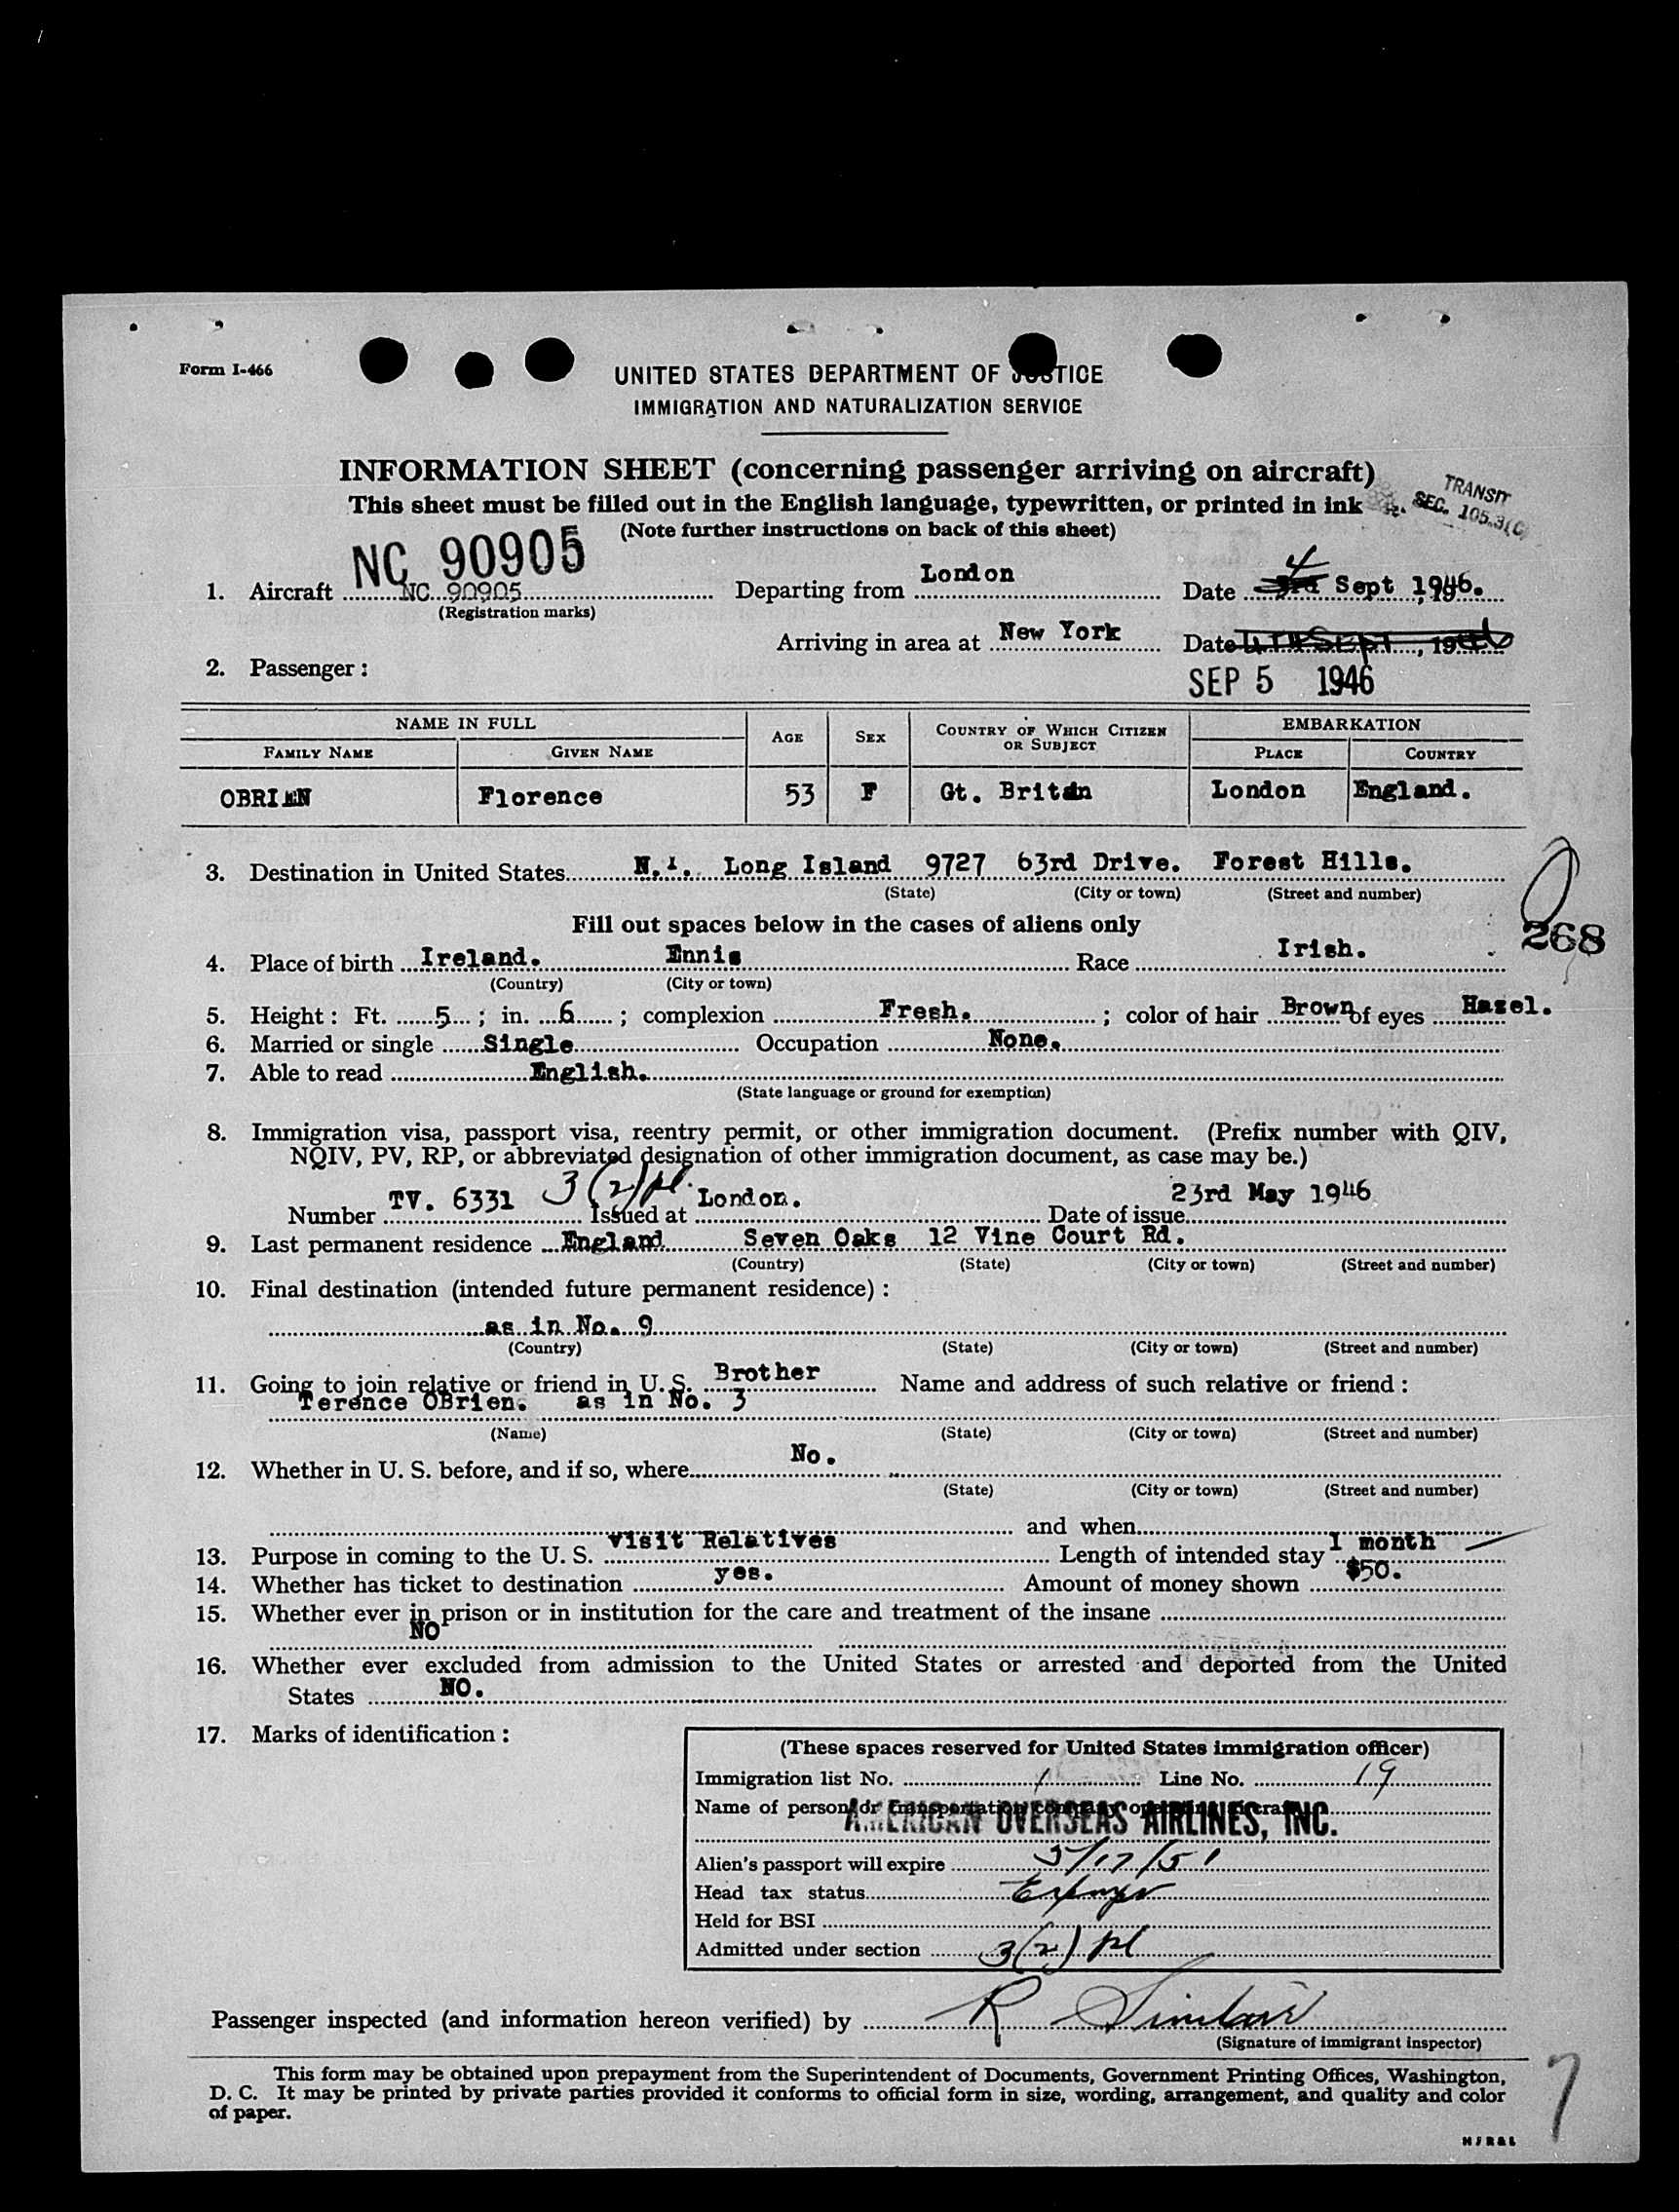 Form I-466
UNITED STATES DEPARTMENT OF JUSTICE
IMMIGRATION AND NATURALIZATION SERVICE
INFORMATION SHEET (concerning passenger arriving on aircraft)
This sheet must be filled out in the English language, typewritten, or printed in ink
TRANSIT
SEC. 105.3(C)
(Note further instructions on back of this sheet)
NC 90905
1. Aircraft NC 90905 Departing from London Date 4 Sept 1946.
(Registration marks)
Arriving in area at New York Date 4TH SEPT, 1946
2. Passenger : SEP 5 1946
NAME IN FULL AGE SEX COUNTRY OF WHICH CITIZEN OR SUBJECT EMBARKATION
FAMILY NAME GIVEN NAME PLACE COUNTRY
OBRIEN Florence 53 F Gt. Britan London England.
3. Destination in United States N.Y. Long Island 9727 63rd Drive. Forest Hills.
(State) (City or town) (Street and number)
Fill out spaces below in the cases of aliens only
268
4. Place of birth Ireland. Ennis Race Irish.
(Country) (City or town)
5. Height : Ft. 5 ; in. 6 ; complexion Fresh. ; color of hair Brown of eyes Hazel.
6. Married or single Single Occupation None.
7. Able to read English.
(State language or ground for exemption)
8. Immigration visa, passport visa, reentry permit, or other immigration document. (Prefix number with QIV,
NQIV, PV, RP, or abbreviated designation of other immigration document, as case may be.)
Number TV. 6331 3(2) pl. Issued at London. Date of issue 23rd May 1946
9. Last permanent residence England Seven Oaks 12 Vine Court Rd.
(Country) (State) (City or town) (Street and number)
10. Final destination (intended future permanent residence) :
as in No. 9
(Country) (State) (City or town) (Street and number)
11. Going to join relative or friend in U. S. Brother Name and address of such relative or friend :
Terence OBrien. as in No. 3
(Name) (State) (City or town) (Street and number)
12. Whether in U. S. before, and if so, where No.
(State) (City or town) (Street and number)
and when
13. Purpose in coming to the U. S. Visit Relatives Length of intended stay 1 month
14. Whether has ticket to destination yes. Amount of money shown $50.
15. Whether ever in prison or in institution for the care and treatment of the insane
NO
16. Whether ever excluded from admission to the United States or arrested and deported from the United
States NO.
17. Marks of identification :
(These spaces reserved for United States immigration officer)
Immigration list No. 1 Line No. 19
Name of person or transportation company operating aircraft
AMERICAN OVERSEAS AIRLINES, INC.
Alien's passport will expire 5/17/51
Head tax status
Held for BSI
Admitted under section 3(2) pl
Passenger inspected (and information hereon verified) by R Sinclair
(Signature of immigrant inspector)
This form may be obtained upon prepayment from the Superintendent of Documents, Government Printing Offices, Washington,
D. C. It may be printed by private parties provided it conforms to official form in size, wording, arrangement, and quality and color
of paper.
7